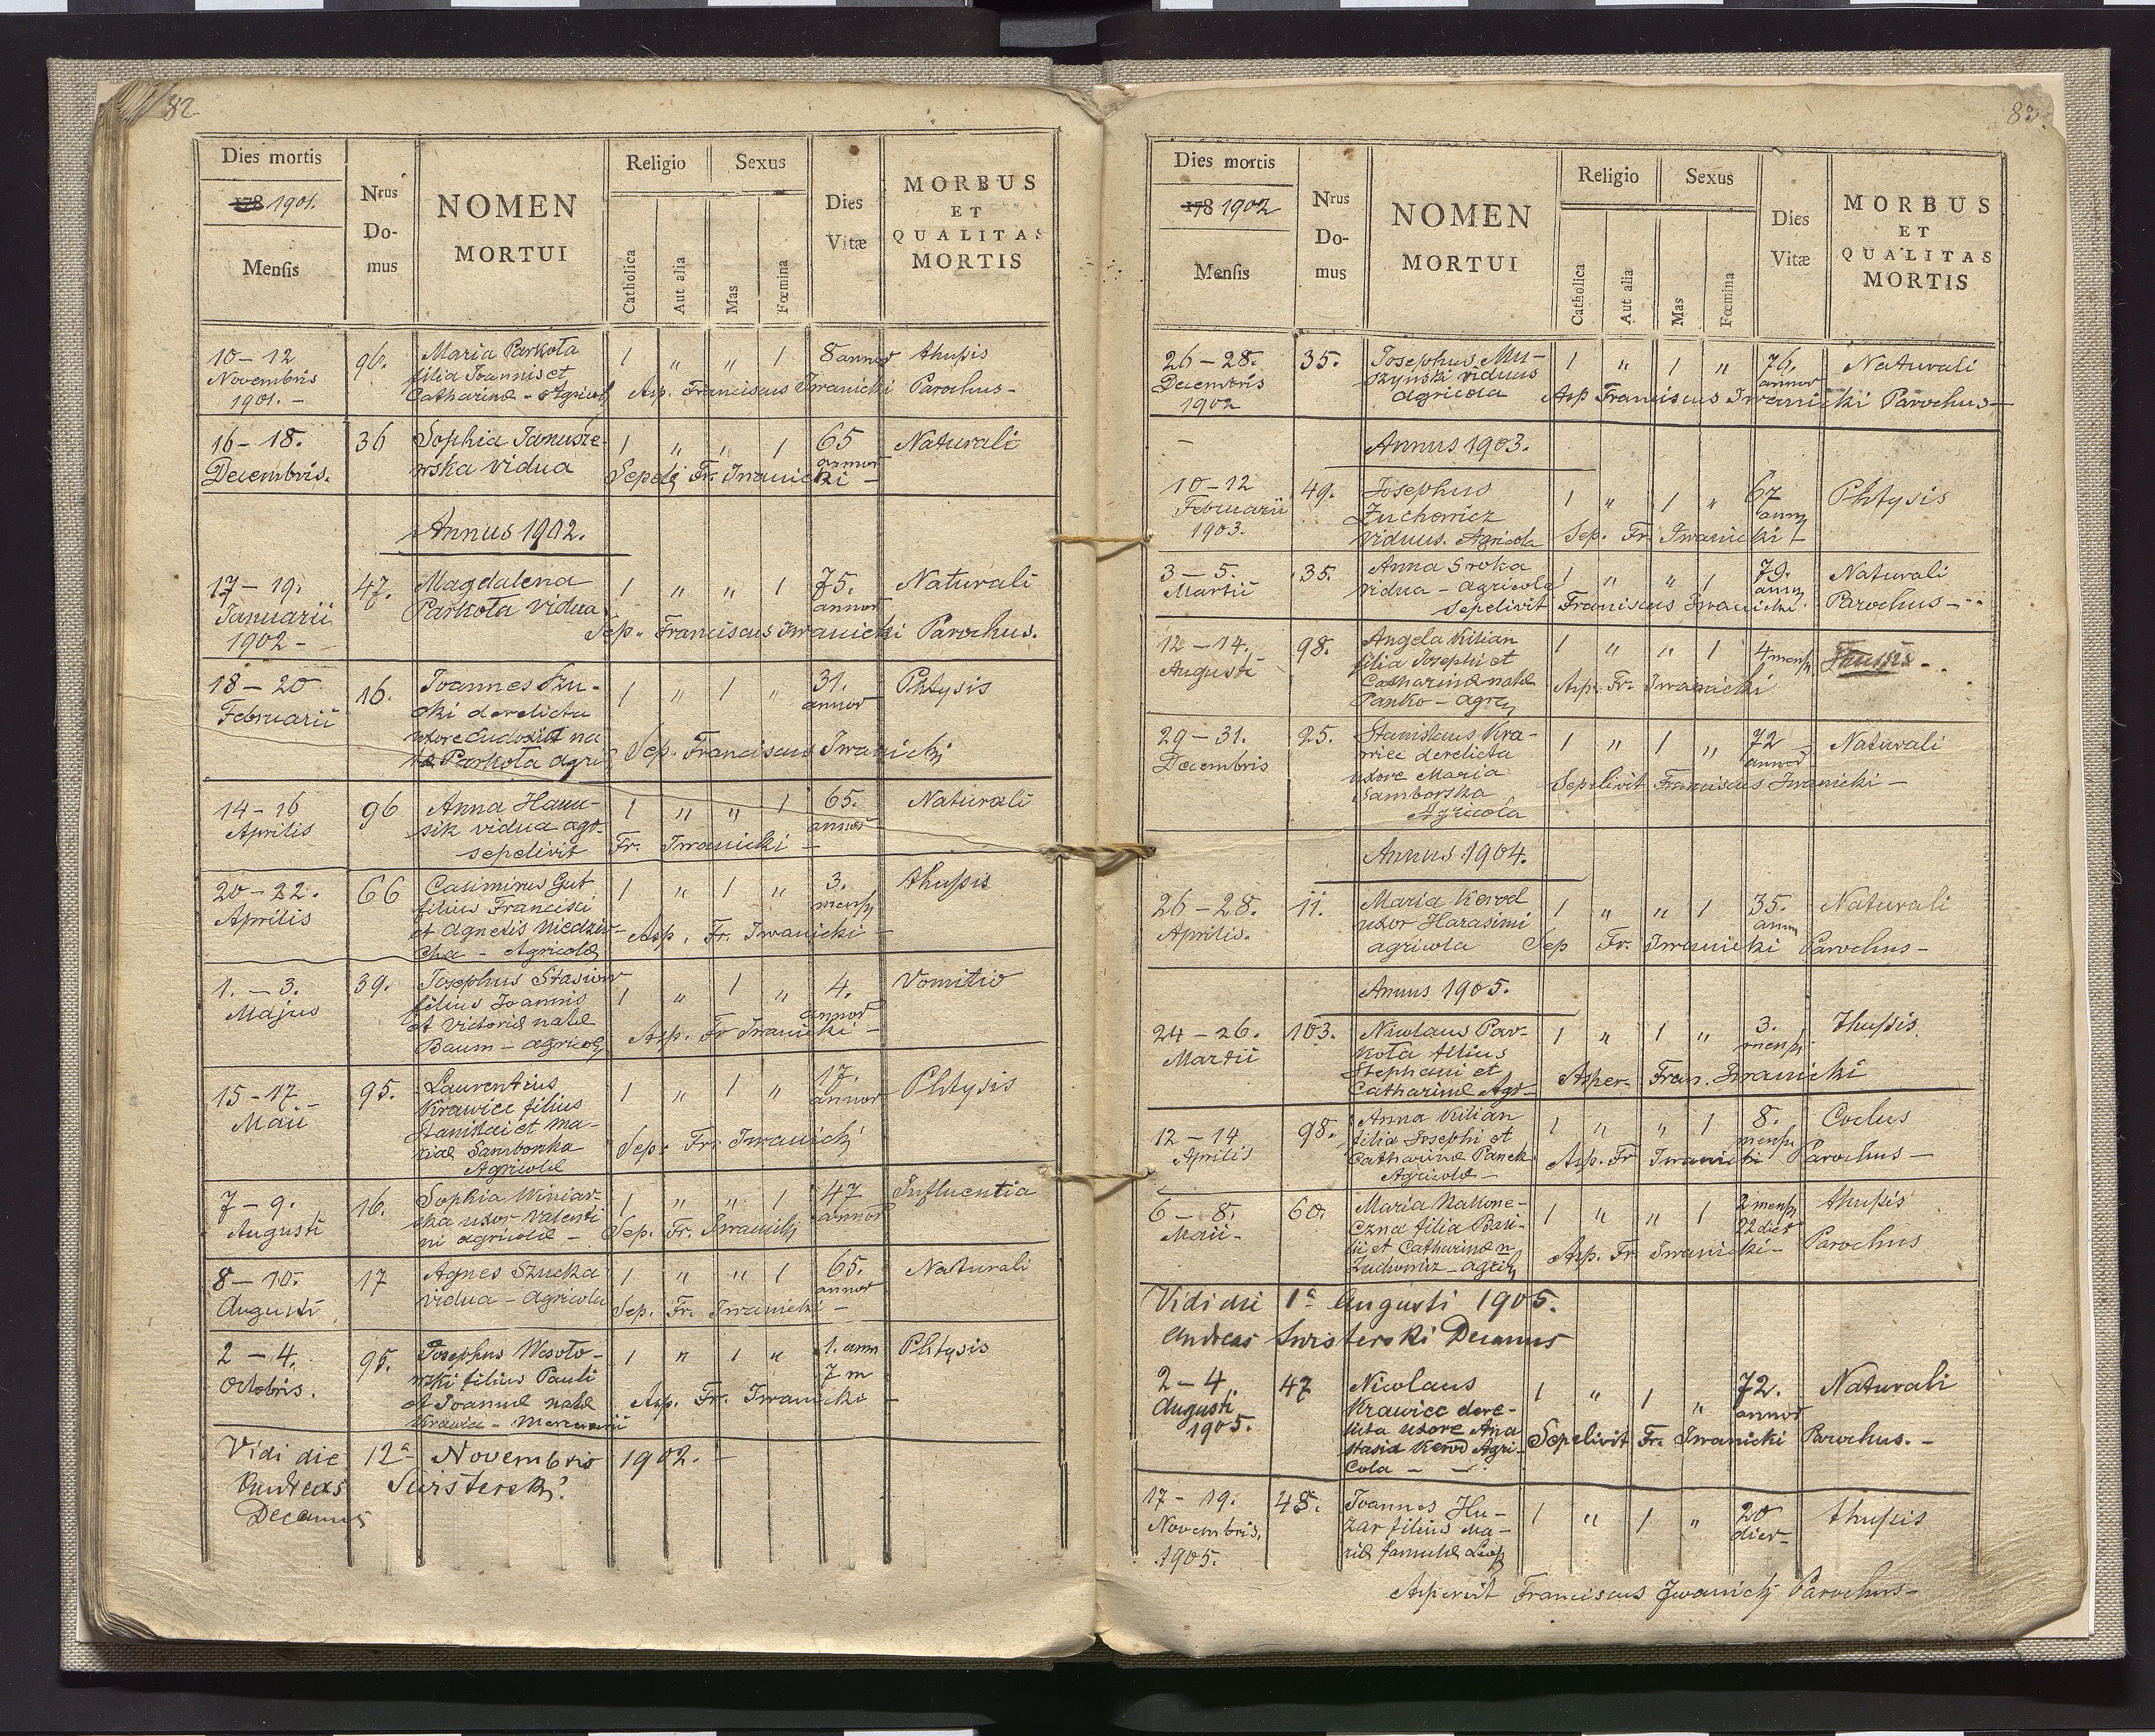 82
Dies mortis
178 1901.
Mensis
Nrus
Do-
mus
NOMEN
MORTUI
Religio
Sexus
Catholica
Aut alia
Mas
Fœmina
Dies
Vitæ
MORBUS
ET
QUALITAS
MORTIS
10-12 96. Maria Parkoła 1 " " 1 8 annor thusis
Novembris filia Joannis et
1901. - Catharinæ - Agricol Asp. Franciscus Iwanicki Parochus -
16-18. 36 Sophia Janusze- 1 " " 1 65 Naturali
Decembris. wska vidua annor
Sepeli Fr. Iwanicki -
Annus 1902.
17-19. 47. Magdalena 1 " " 1 75. Naturali
Januarii Parkoła vidua annor
1902 - Sep. Franciscus Iwanicki Parochus.
18-20 16. Joannes Szu- 1 " 1 " 31. Phtysis
Februarii cki derelicta annor
uxore Eudoxia na
tæ Parkoła agri Sep. Franciscus Iwanicki
14-16 96 Anna Hanu- 1 " " 1 65. Naturali
Aprilis sik vidua agr. annor
sepelivit Fr. Iwanicki -
20-22. 66 Casimirus Gut 1 " 1 " 3. thussis
Aprilis filius Francisci mens
et Agnetis Niedzw- Asp. Fr. Iwanicki -
cka - Agricolæ
1. - 3. 39. Josephus Stasiow 1 " 1 " 4. Vomitio
Majus filius Joannis annor
et Victoriæ natæ Asp. Fr Iwanicki -
Baum - agricol
15-17 95. Laurentius 1 " 1 " 17. Phtysis
Maii Krawiec filius annor
Stanislai et Ma-
riæ Samborska Sep. Fr. Iwanicki
Agricolæ
7-9. 16. Sophia Winiar- 1 " " 1 47 Influentia
Augusti ska uxor Valenti annor
ni agricolæ - Sep. Fr. Iwanicki
8-10. 17 Agnes Szucka 1 " " 1 65. Naturali
Augusti vidua - agricola annor
Sep. Fr. Iwanicki -
2-4. 95. Josephus Wesoło- 1 " 1 " 1. ann Phtysis
Octobris. wski filius Pauli 7 m
et Joannæ natæ Asp. Fr. Iwanicki -
Krawiec - Mercenarii
Vidi die 12a Novembris 1902. -
Andreas
Decanus
83.
Dies mortis
178 1902
Mensis
Nrus
Do-
mus
NOMEN
MORTUI
Religio
Sexus
Catholica
Aut alia
Mas
Fœmina
Dies
Vitæ
MORBUS
ET
QUALITAS
MORTIS
26-28. 35. Josephus Mu- 1 " 1 " 76. Naturali
Decembris szynski viduus annor
1902 agricola Asp Franciscus Iwanicki Parochus -
- Annus 1903.
10-12 49. Josephus 1 " 1 " 67 Phtysis
Februarii Zuchowicz ann
1903. viduus. Agricola Sep. Fr. Iwanicki -
3-5. 35. Anna Sroka 1 " " 1 79. Naturali
Martii vidua - agricola ann
sepelivit Franciscus Iwanicki Parochus -
12-14. 98. Angela Kilian 1 " " 1 4 mens
Augusti filia Josephi et
Catharinæ natæ Asp. Fr. Iwanicki
Panko - agr
29-31. 25. Stanislaus Kra- 1 " 1 " 72 Naturali
Decembris wiec derelicta annor
uxore Maria Sepelivit Franciscus Iwanicki -
Samborska
Agricola
Annus 1904.
26-28. 11. Maria Korod 1 " " 1 35. Naturali
Aprilis. uxor Harasimi ann
agricola Sep Fr. Iwanicki Parochus -
Annus 1905.
24-26. 103. Nicolaus Par- 1 " 1 " 3. thussis
Martii koła filius mens
Stephani et
Catharinæ Agr- Asper. Fran. Iwanicki
12-14 98. Anna Kilian 1 " " 1 8. Coclus
Aprilis filia Josephi et mens
Catharinæ Panek Asp. Fr Iwanicki Parochus -
Agricolæ -
6-8. 60. Maria Nakone- 1 " " 1 2 mens thussis
Maii - czna filia Basi- 22 dier
lii et Catharinæ n Asp. Fr. Iwanicki - Parochus
Zuchowicz - agric
Vidi die 1a Augusti 1905.
Andreas Decanus
2-4. 47 Nicolaus 1 " 1 " 72. Naturali
Augusti Krawiec dere- annor
1905. licta uxore Ana
stasia Korod Agri- Sepelivit Fr. Iwanicki Parochus. -
cola -
17-19. 48. Joannes Hu- 1 " 1 " 20 thussis
Novembris, zar filius Ma- dier-
1905. riæ famulæ
Asperit Franciscus Iwanicki Parochus -